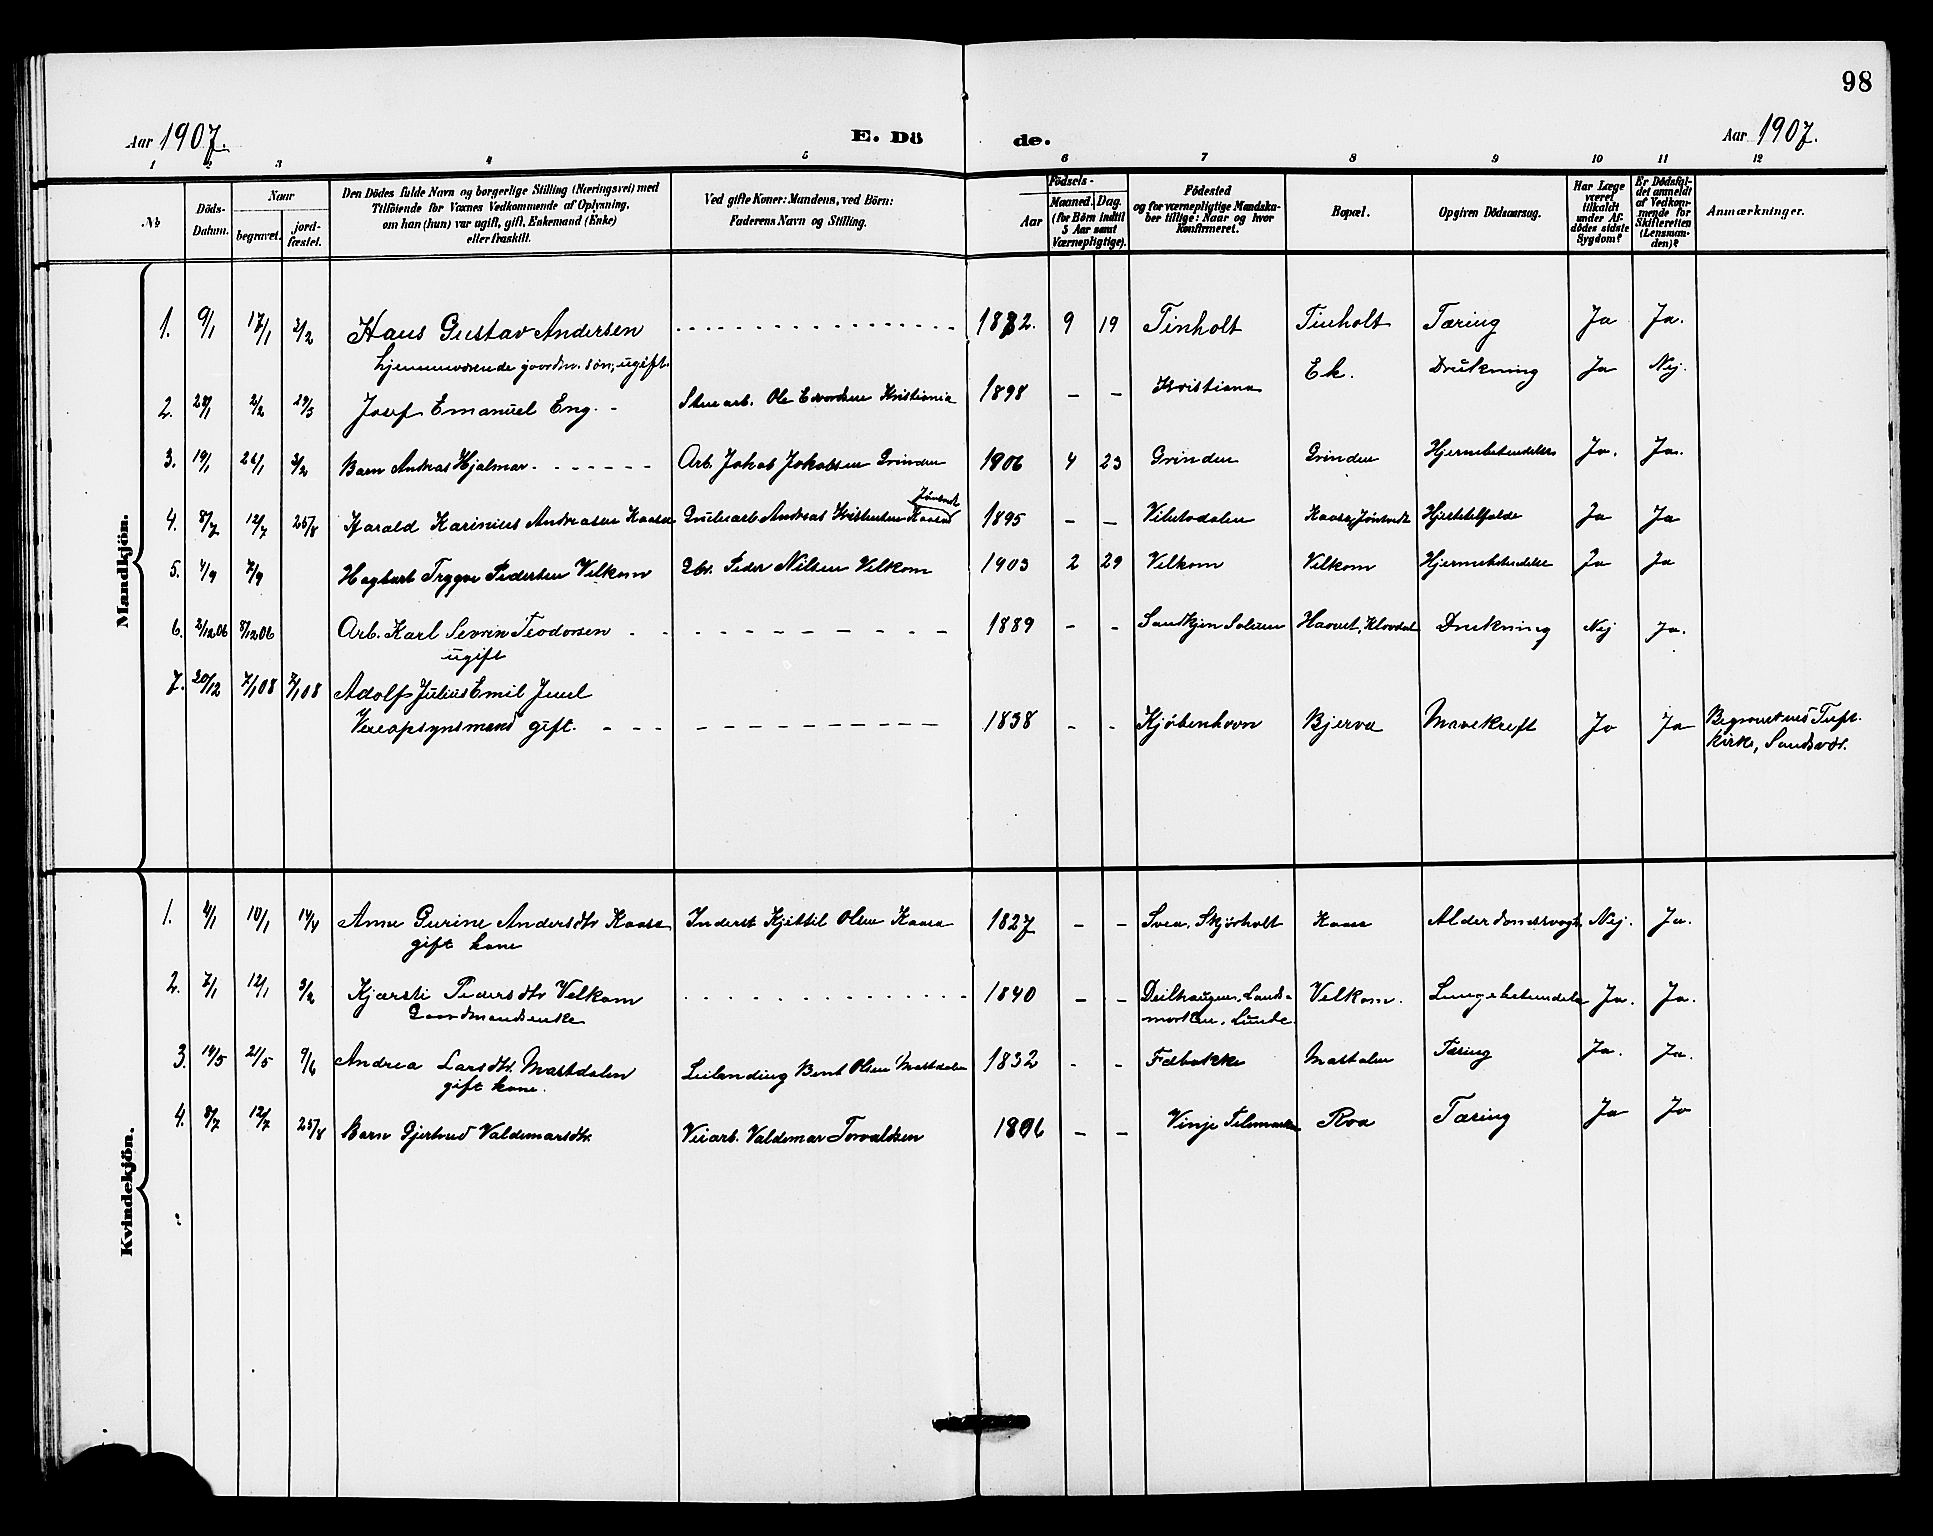 98
Aar 1907.
E. Dö de.
Aar 1907.
1 2 3 4 5 6 7 8 9 10 11 12
No
Döds-Datum.
Naar
begravet.
jord-fæstet.
Den Dödes fulde Navn og borgerlige Stilling (Næringsvei) med
Tilföiende for Voxnes Vedkommende af Oplysning,
om han (hun) var ugift, gift, Enkemand (Enke)
eller fraskilt.
Ved gifte Koner: Mandens, ved Börn:
Faderens Navn og Stilling.
Födsels-
Aar
Maaned. Dag.
(for Börn indtil
5 Aar samt
Værnepligtige).
Födested
og for værnepligtige Mandska-
ber tillige: Naar og hvor
Konfirmeret.
Bopæl.
Opgiven Dödsaarsag.
Har Læge
været
tilkaldt
under Af-
dödes sidste
Sygdom?
Er Dödsfal-
det anmeldt
af Vedkom-
mende for
Skifteretten
(Lensman-
den)?
Anmærkninger.
Mandkjön.
1. 9/1 17/1 2/2 Hans Gustav Andersen 1872. 9 19 Tinholt Tinholt Tæring Ja Ja.
hjemmeværende gaardm. søn, ugift.
2. 28/1 2/2 29/3 Josef Emanuel Eng. Ole Kristiania 1898 - - Kristiana Ek. Drukning Ja Nej.
3. 19/1 26/1 3/2 Barn Andreas Hjalmar Arb. Jakob Jakobsen Grinden 1906 4 23 Grinden Grinden Hjernebetændelse Ja. Ja.
4. 8/7 12/7 25/8 Harald Karinius Andreasen Kaasa Andreas Kristensen Kaasa 1895 - - Kaasa, Jøntvedt Hjertelfælde Ja Ja
5. 4/9 7/9 Hagbart Trygve Pedersen Velkom Gbr. Peder Nilsen Velkom 1903 2 29 Velkom Velkom Hjernebetændelse Ja Ja
6. 2/12 06 8/12 06 Arb. Karl Severin Teodorsen 1889 - - Solum Drukning Nej Ja.
ugift
7. 20/12 7/1 08 7/1 08 Adolf Julius Emil Juul
Veiopsynsmand gift. 1838 - - Kjøbenhavn Bjerva Mavekreft Ja Ja Begravet ved Tuft.
kirke, Sandsvær.
Kvindekjön.
1. 4/1 10/1 14/4 Anne Gurine Andersdtr Kaasa Inderst Kjittil Olsen Kaasa 1827 - - Svea, Skjørholt Kaasa Alderdomssvagh. Nej. Ja.
gift kone
2. 7/1 12/1 3/2 Kjærsti Pedersdtr Velkom 1840 - - Deilhaugen, Lands- Velkom. Lungebetændelse Ja. Ja.
Gaardmandsenke marken, Lunde.
3. 14/5 21/5 9/6 Andrea Larsdtr. Mastdalen Leilending Bent Olsen Mastdalen 1832 - - Fæbakke Mastalen Tæring Ja. Ja.
gift kone.
4. 8/7 12/7 25/8 Barn Gjertrud Valdemarsdtr. Veiarb. Valdemar Torvaldsen 1896 - - Vinje Telemarken Roa Tæring Ja Ja